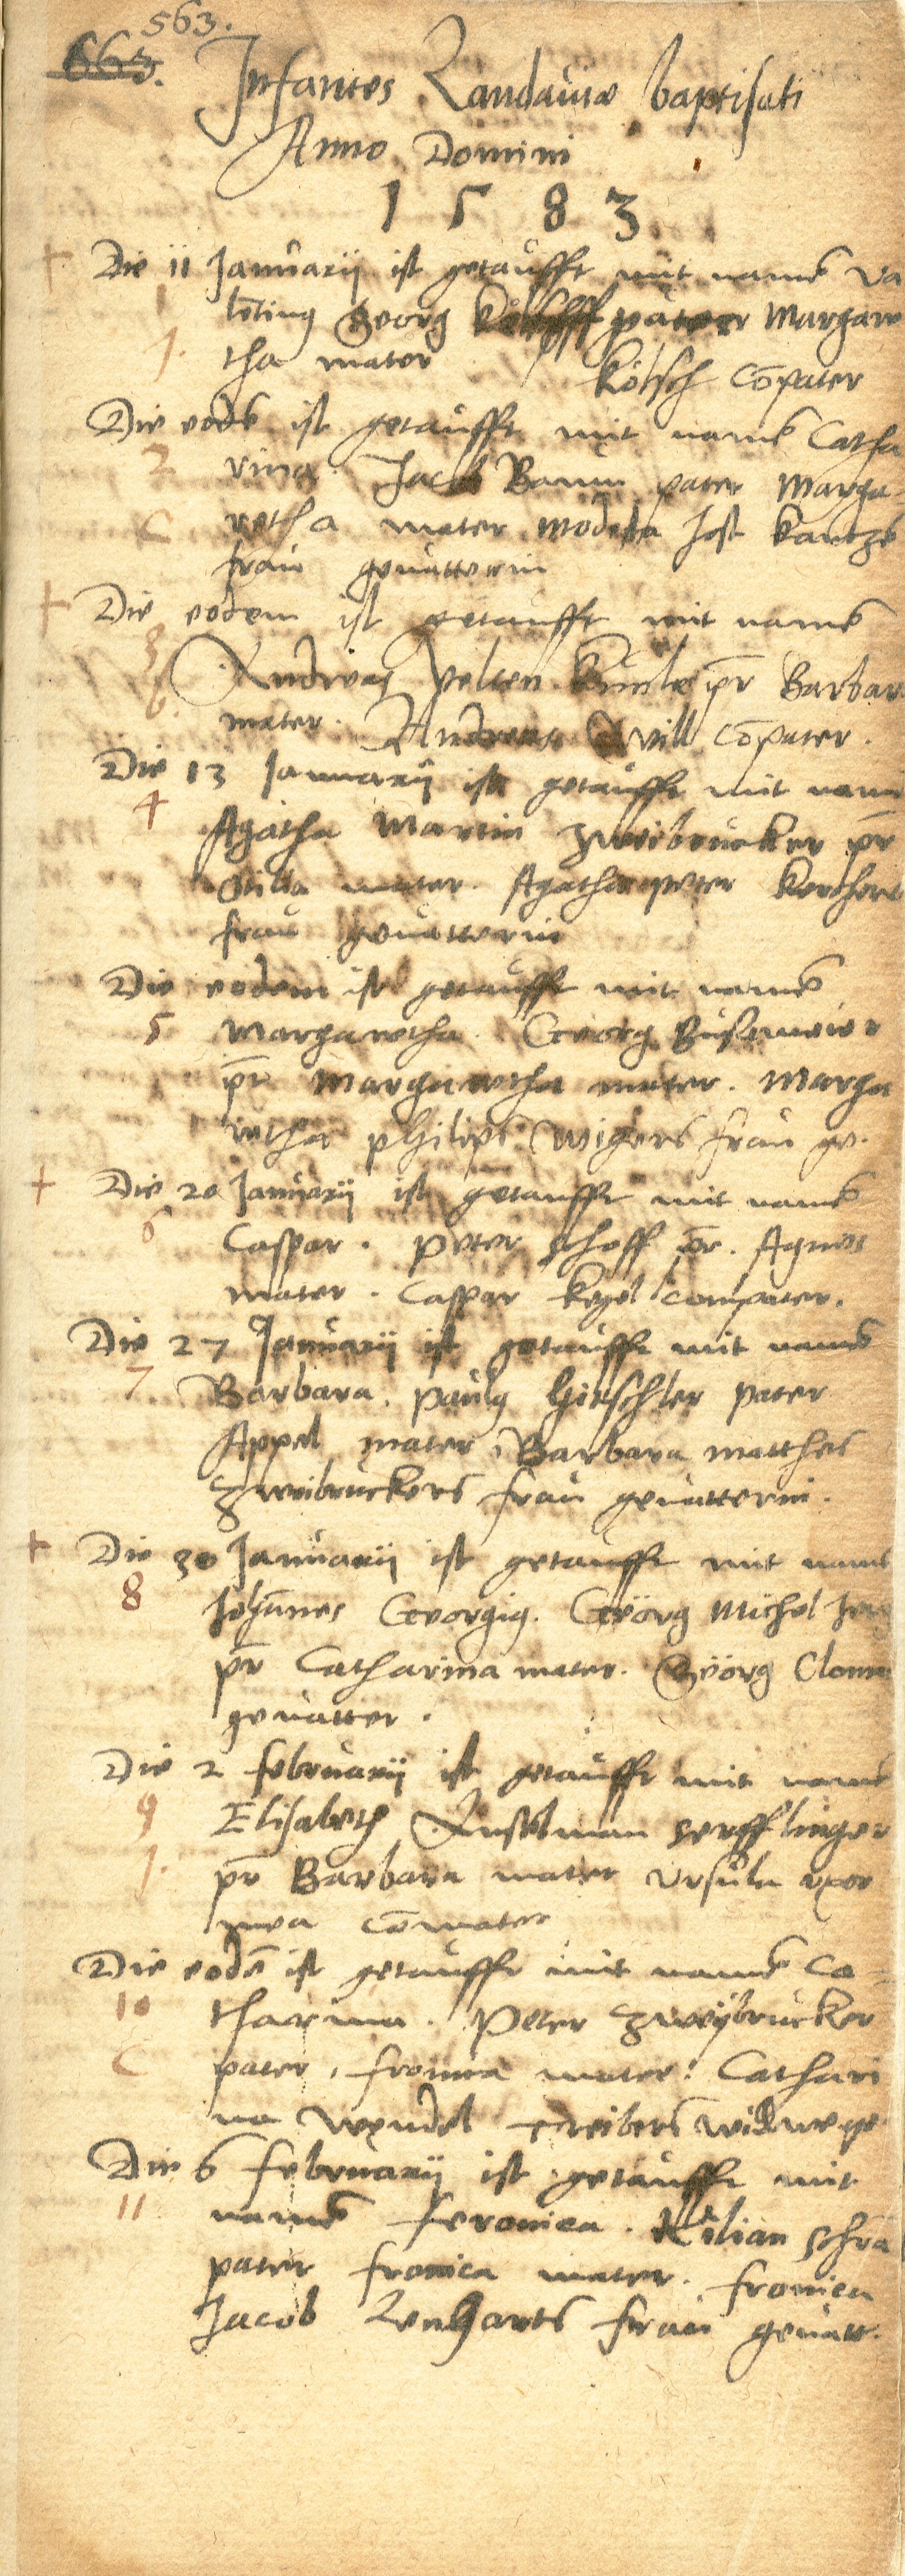 563.
663.
Infantes Landaviæ baptisati
Anno Domini
1 5 8 3
Die 11 Januarij ist getaufft mit namē Va
1 lētinꝰ Georg pater Margare
1. tha mater Kölsch cōpater
Die eodē ist getaufft mit namē Catha
2 rina. Jacob Baum pater Marga-
C retha mater Modesta Jost
frau gevatterin
Die eodem ist getaufft mit namē
3 Andreas Velten pr̄ Barbar
mater. Andreas Will cōpater.
Die 13 Januarij ist getaufft mit namē
4 Agatha Martin Zweibrucker pr̄
Otilia mater. Agatha peter
frau gevatterin
Die eodem ist getaufft mit namē
5 Margaretha. Georg
pr̄ Margaretha mater. Marga
retha philips Wigers frau ge.
Die 20 Januarij ist getaufft mit namē
6 Caspar. Peter schoff pr̄. Agnes
mater. Caspar Kegel compater.
Die 27 Januarij ist getaufft mit namē
7 Barbara. Paulꝰ Hirschler pater
Appel mater Barbara Matthes
Zweibruckers frau gevatterin.
Die 30 Januarij ist getaufft mit namē
8 Johannes Georgiꝰ. Geörg Michel
pr̄ Catharina mater. Geörg
gevatter.
Die 2 februarij ist getaufft mit namē
9 Elisabeth Anselman serfflinger
1. pr̄ Barbara mater Ursula uxor
mea cōmater
Die eodē ist getaufft mit namē Ca-
10 tharina. Peter Zweÿbrucker
C pater, fronica mater. Cathari
na Wendel widwe ge.
Die 6 februarij ist getaufft mit
11 namē feronica. Kilian
pater fronica mater. fronica
Jacob Lenharts frau gevatt.